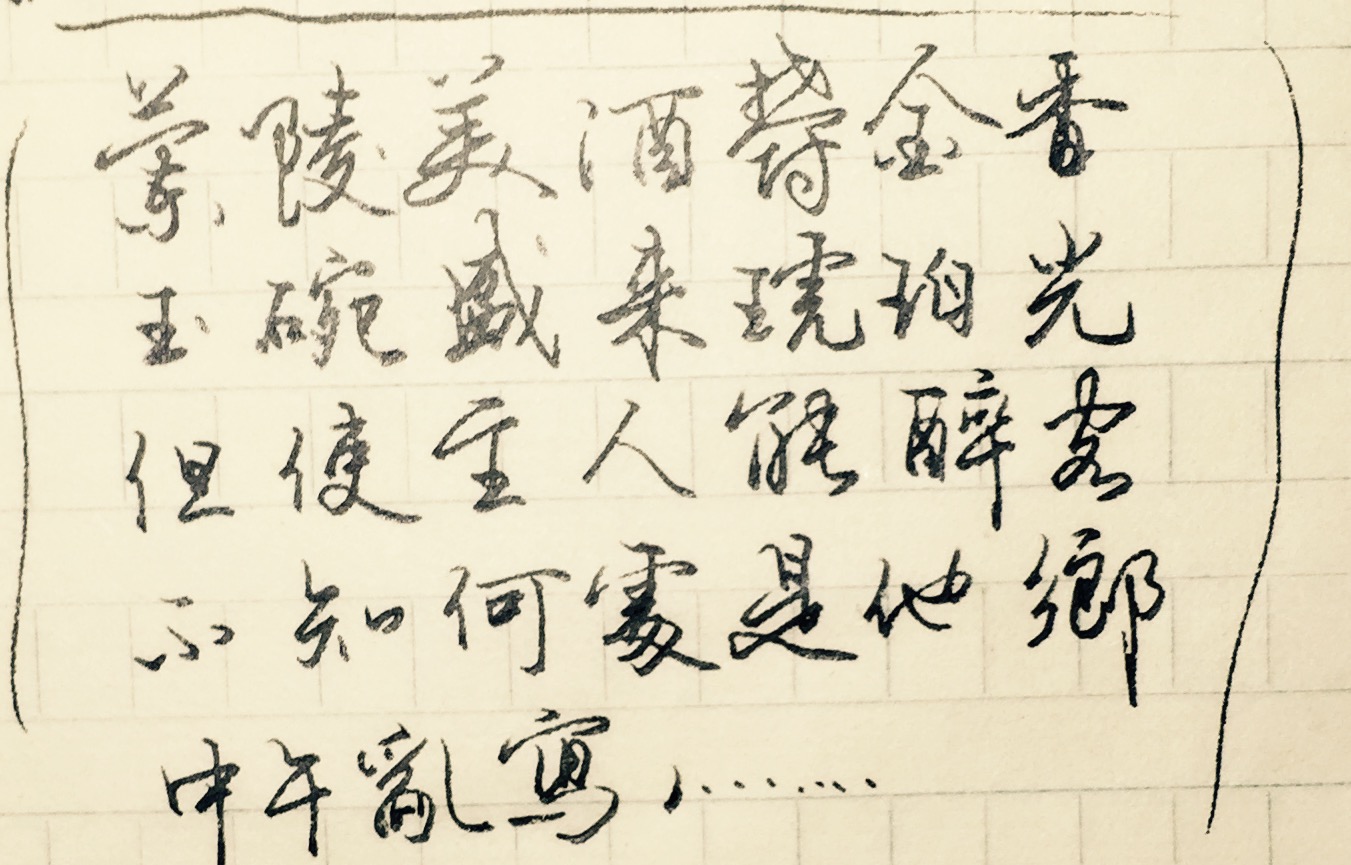 蘭陵美酒鬱金香
玉碗盛来琥珀光
但使主人能醉客
不知何處是他鄉
中午亂寫，……